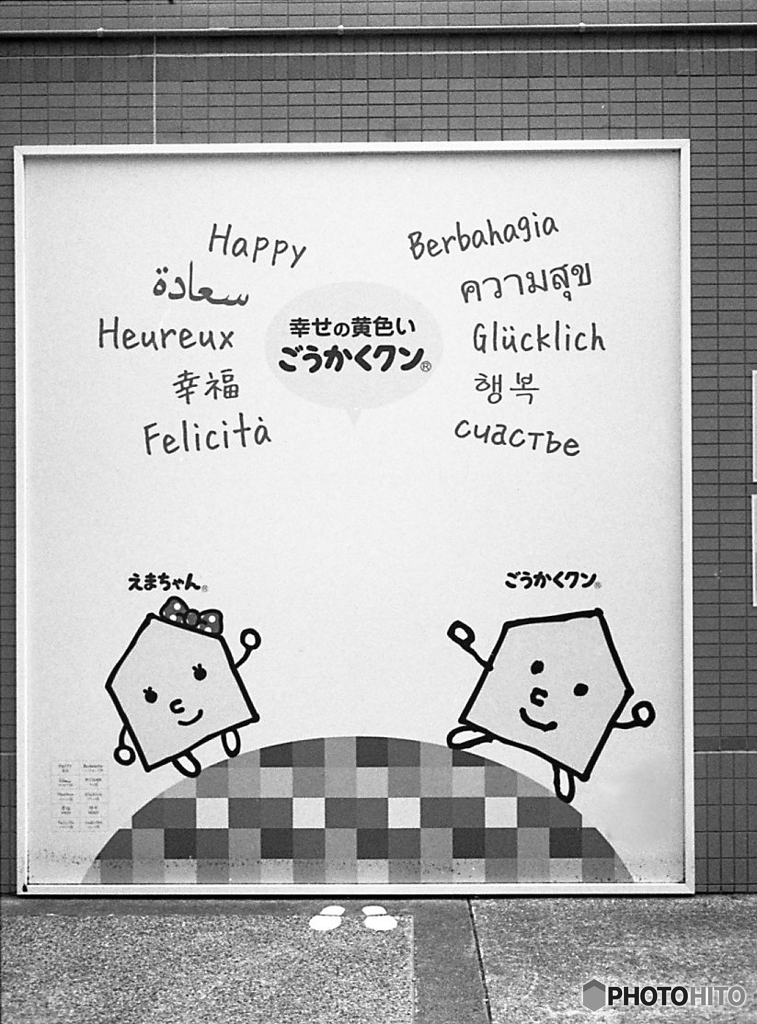 Happy
سعادة
Heureux
幸福
Felicità
幸せの黄色い
ごうかくクン®
Berbahagia
ความสุข
Glücklich
행복
счастье
えまちゃん®
ごうかくクン®
PHOTOHITO